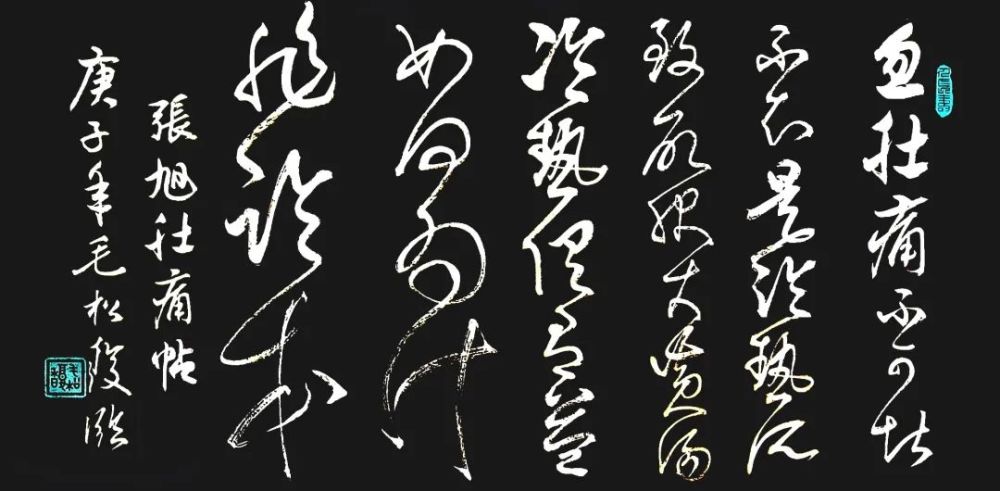 忽肚痛不可堪
不知是冷熱所
致欲服大黃湯
冷熱俱有益
如何為計
非臨床
張旭肚痛帖
庚子年毛松臨